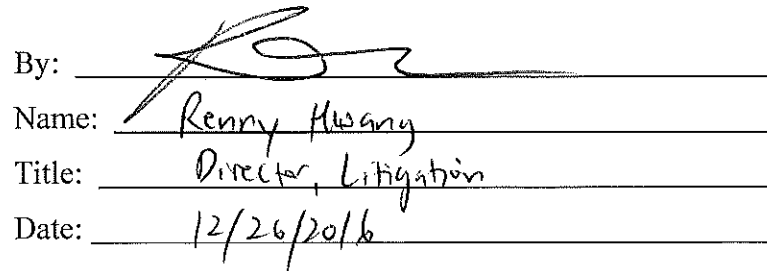 By:
Name: Renny Hwang
Title: Director, Litigation
Date: 12/26/2016